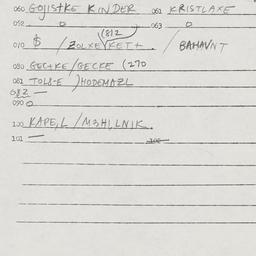 060 GOJISTKE KINDER 061 KRISTLAXE
052 0 063 0
(812
070 $ / ZOLXE KETT / BAHAVNT
080 GECTKE/GECKE (270
081 TOLS-E )HODEMAZL
082 —
090 0
100 KAPE,L / M3HILNIK.
101 —